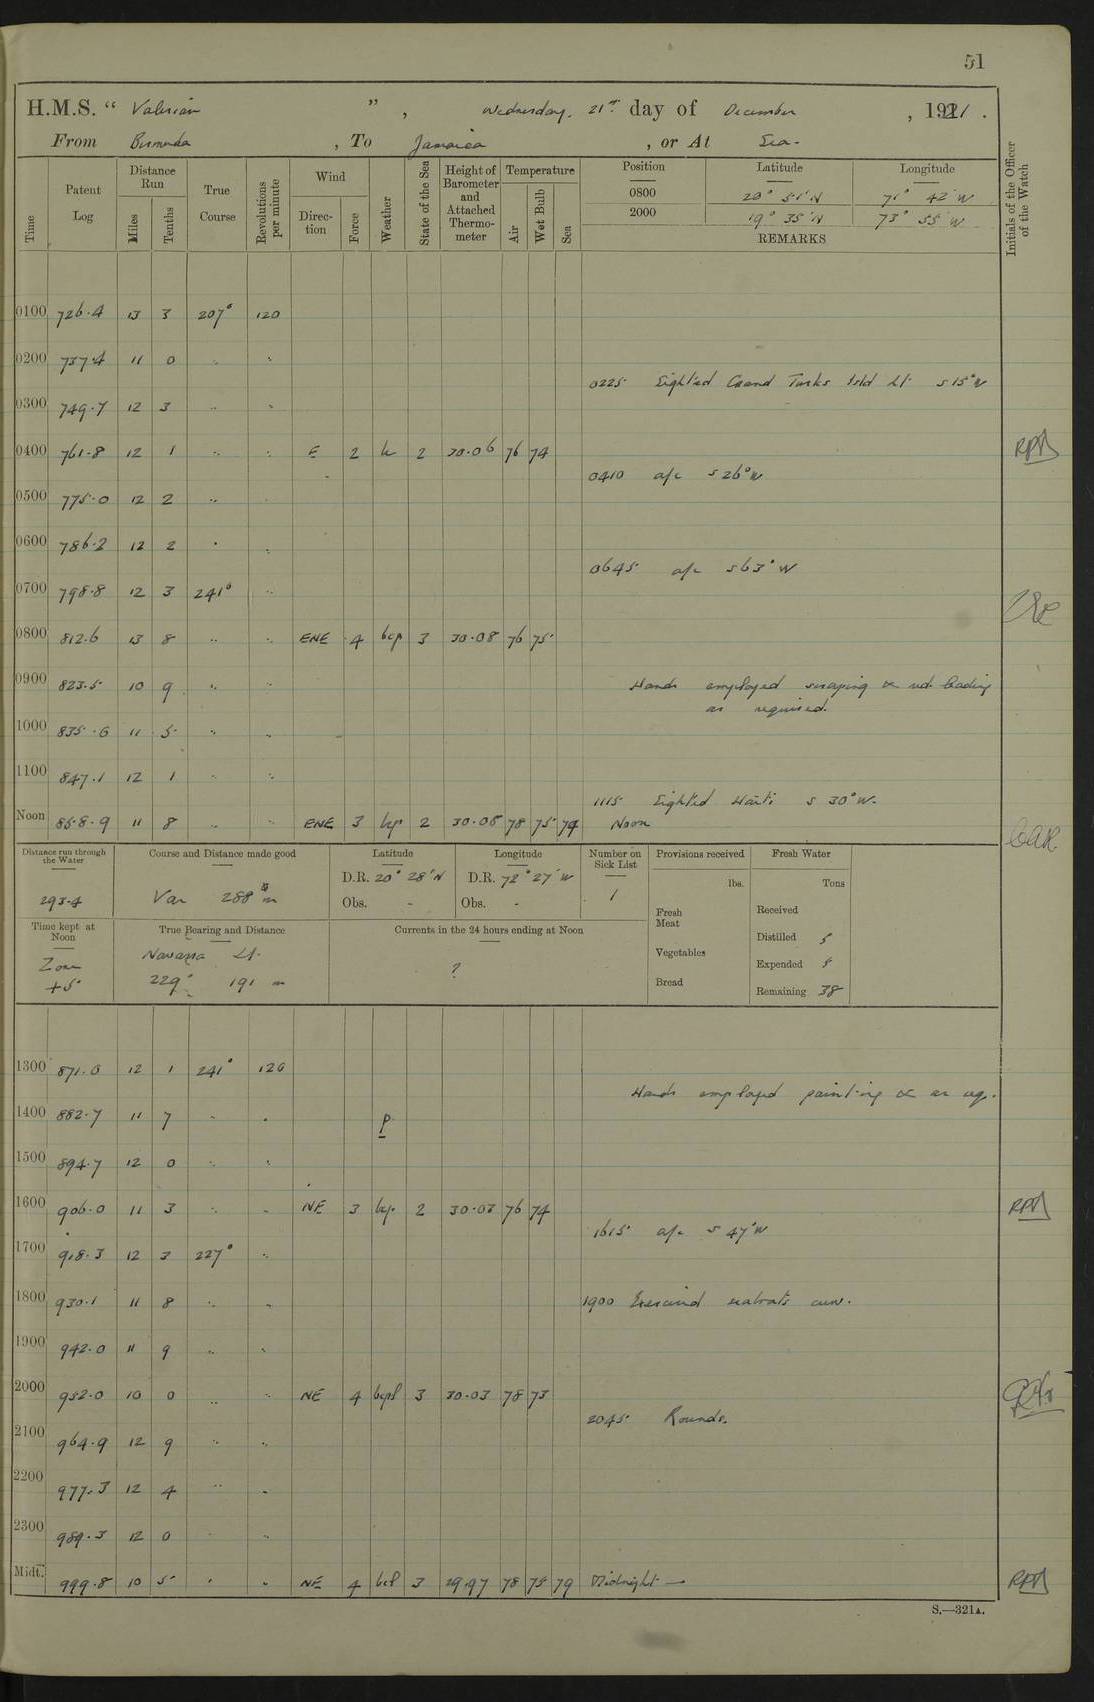 51
H.M.S. “ Valerian ” , Wednesday, 21st day of December , 1921 .
From Bermuda , To Jamaica , or At Sea-
Time Patent Log Distance Run Miles Tenths True Course Revolutions per minute Wind Direction Force Weather State of the Sea Height of Barometer and Attached Thermometer Temperature Air Wet Bulb Sea Position Latitude Longitude Initials of the Officer of the Watch
0800 20° 51'N 71° 42'W
2000 19° 35'N 73° 55'W
REMARKS
0100 726.4 13 3 207° 120
0200 737.4 11 0 " "
0225 Sighted Grand Turks Isld Lt. S15°W
0300 749.7 12 3 " "
0400 761.8 12 1 " " E 2 2 30.06 76 74
0410 a/c S26°W
0500 775.0 12 2 "
0600 786.2 12 2 " "
0645 a/c S63°W
0700 798.8 12 3 241° "
0800 812.6 13 8 " " ENE 4 bcp 3 30.08 76 75
0900 823.5 10 9 " " Hands employed scraping & red leading
as required.
1000 835.6 11 5 " "
1100 847.1 12 1 " "
1115 Sighted Haiti S 30°W.
Noon 858.9 11 8 " " ENE 3 bcp 2 30.08 78 75 79 Noon
Distance run through the Water Course and Distance made good Latitude Longitude Number on Sick List Provisions received Fresh Water
293.4 Var 288 m D.R. 20° 28'N D.R. 72° 27'W 1 lbs. Tons
Obs. - Obs. -
Fresh Meat Received
Time kept at Noon True Bearing and Distance Currents in the 24 hours ending at Noon Distilled 5
Zone +5 Navassa Lt. ? Vegetables Expended 8
229° 191 m Bread Remaining 38
1300 871.0 12 1 241° 120
Hands employed painting & as req.
1400 882.7 11 7 " " p
1500 894.7 12 0 " "
1600 906.0 11 3 " " NE 3 bcp 2 30.03 76 74
1615 a/c S 47°W
1700 918.3 12 3 227° "
1800 930.1 11 8 " " 1900 Exercised seaboats crew.
1900 942.0 11 9 " "
2000 952.0 10 0 " " NE 4 3 30.03 78 73
2045 Rounds.
2100 964.9 12 9 " "
2200 977.3 12 4 " "
2300 989.3 12 0 " "
Midt. 999.8 10 5 " " NE 4 3 29.97 78 75 79 Midnight —
S.—321A.